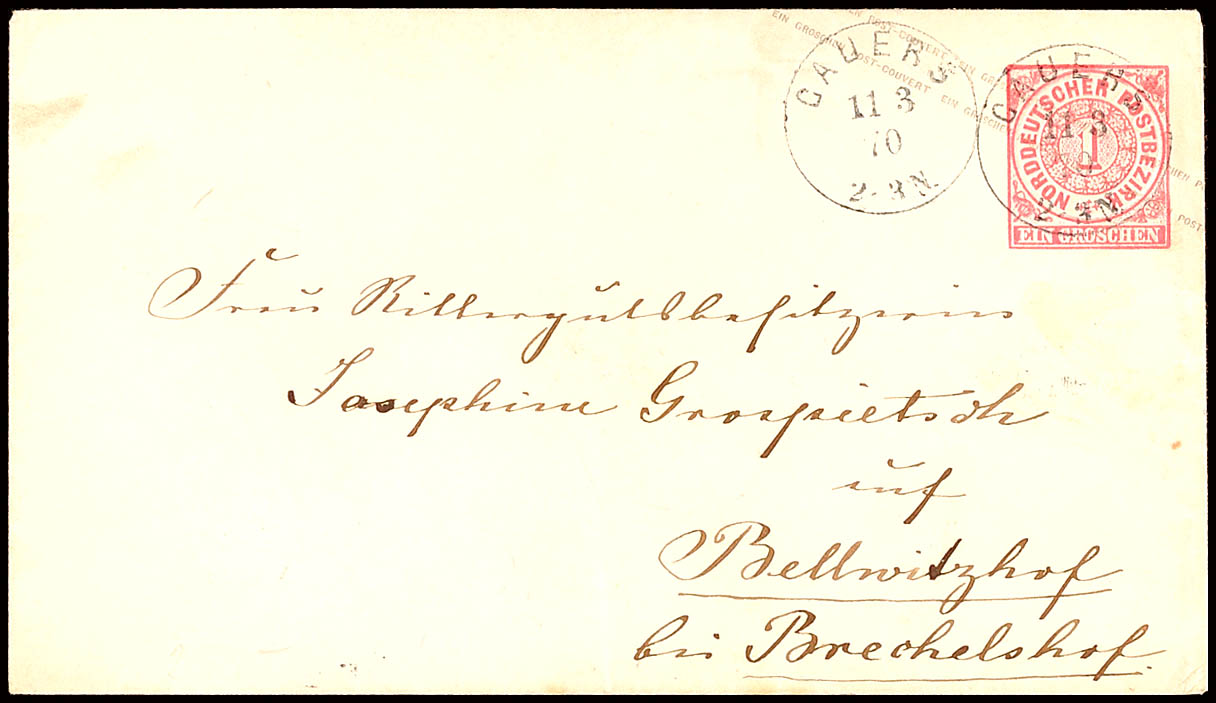 EIN GROSCHEN POST-COUVERT EIN GROSCHEN
POST-COUVERT EIN
GAUERS
11 3
70
2-3N.
GAUERS
11 3
70
2-3N.
NORDDEUTSCHER POSTBEZIRK
1
EIN GROSCHEN
Frau Rittergutsbesitzerin
Josephine Grospietsch
auf
Bellwitzhof
bei Brechelshof.